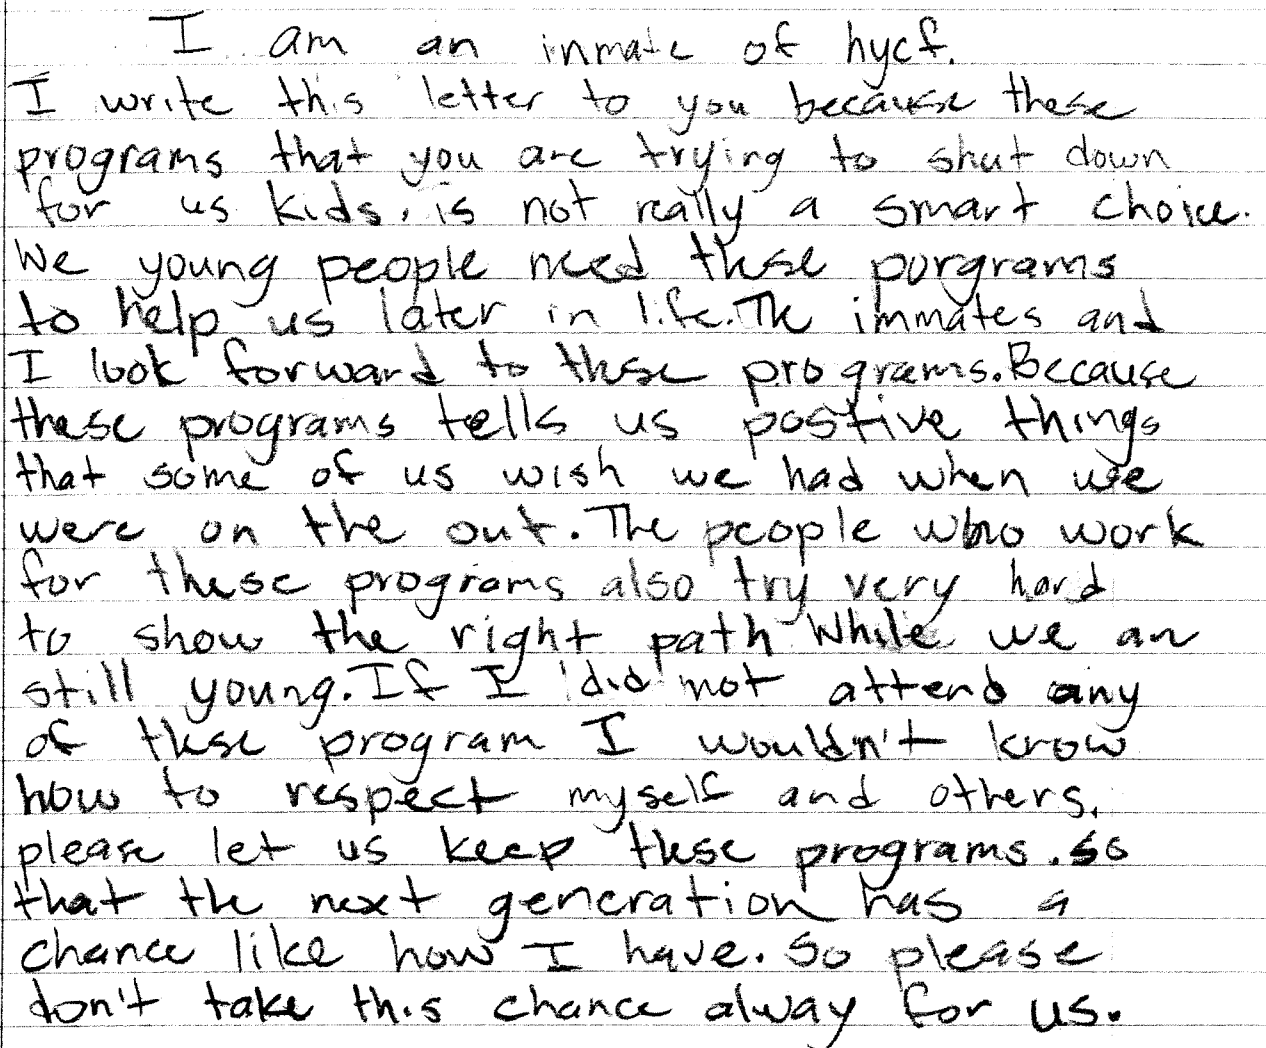 I am an inmate of hycf.
I write this letter to you because these
programs that you are trying to shut down
for us kids, is not really a smart choice.
We young people need these purgrams
to help us later in life. The immates and
I look forward to these programs. Because
these programs tells us postive things
that some of us wish we had when we
were on the out. The people who work
for these programs also try very hard
to show the right path While we are
still young. If I did not attend any
of these program I wouldn't know
how to respect myself and others.
please let us keep these programs. so
that the next generation has a
chance like how I have. So please
don't take this chance alway for us.